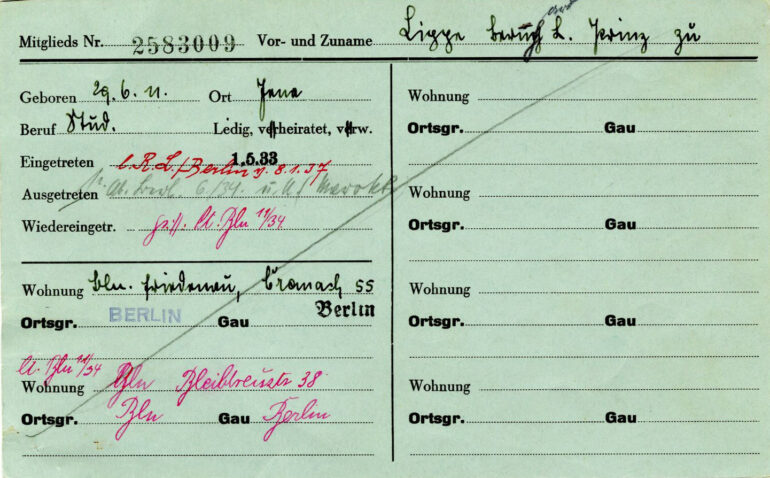 Mitglieds Nr. 2583009 Vor- und Zuname Lippe Bernh L. Prinz zu
ard
Geboren 29.6.11. Ort Jena
Beruf Stud. Ledig, verheiratet, verw.
Eingetreten 1.5.33
l. R.L./Berlin v. 8.1.37
Ausgetreten lt. Ab. Berl. 6/34 u.
Wiedereingetr. lt. Bln 11/34
Wohnung Bln. Friedenau, Cranach 55
Ortsgr. BERLIN Gau Berlin
lt. Bln 11/34
Wohnung Bln Bleibtreustr 38
Ortsgr. Bln Gau Berlin
Wohnung
Ortsgr. Gau
Wohnung
Ortsgr. Gau
Wohnung
Ortsgr. Gau
Wohnung
Ortsgr. Gau